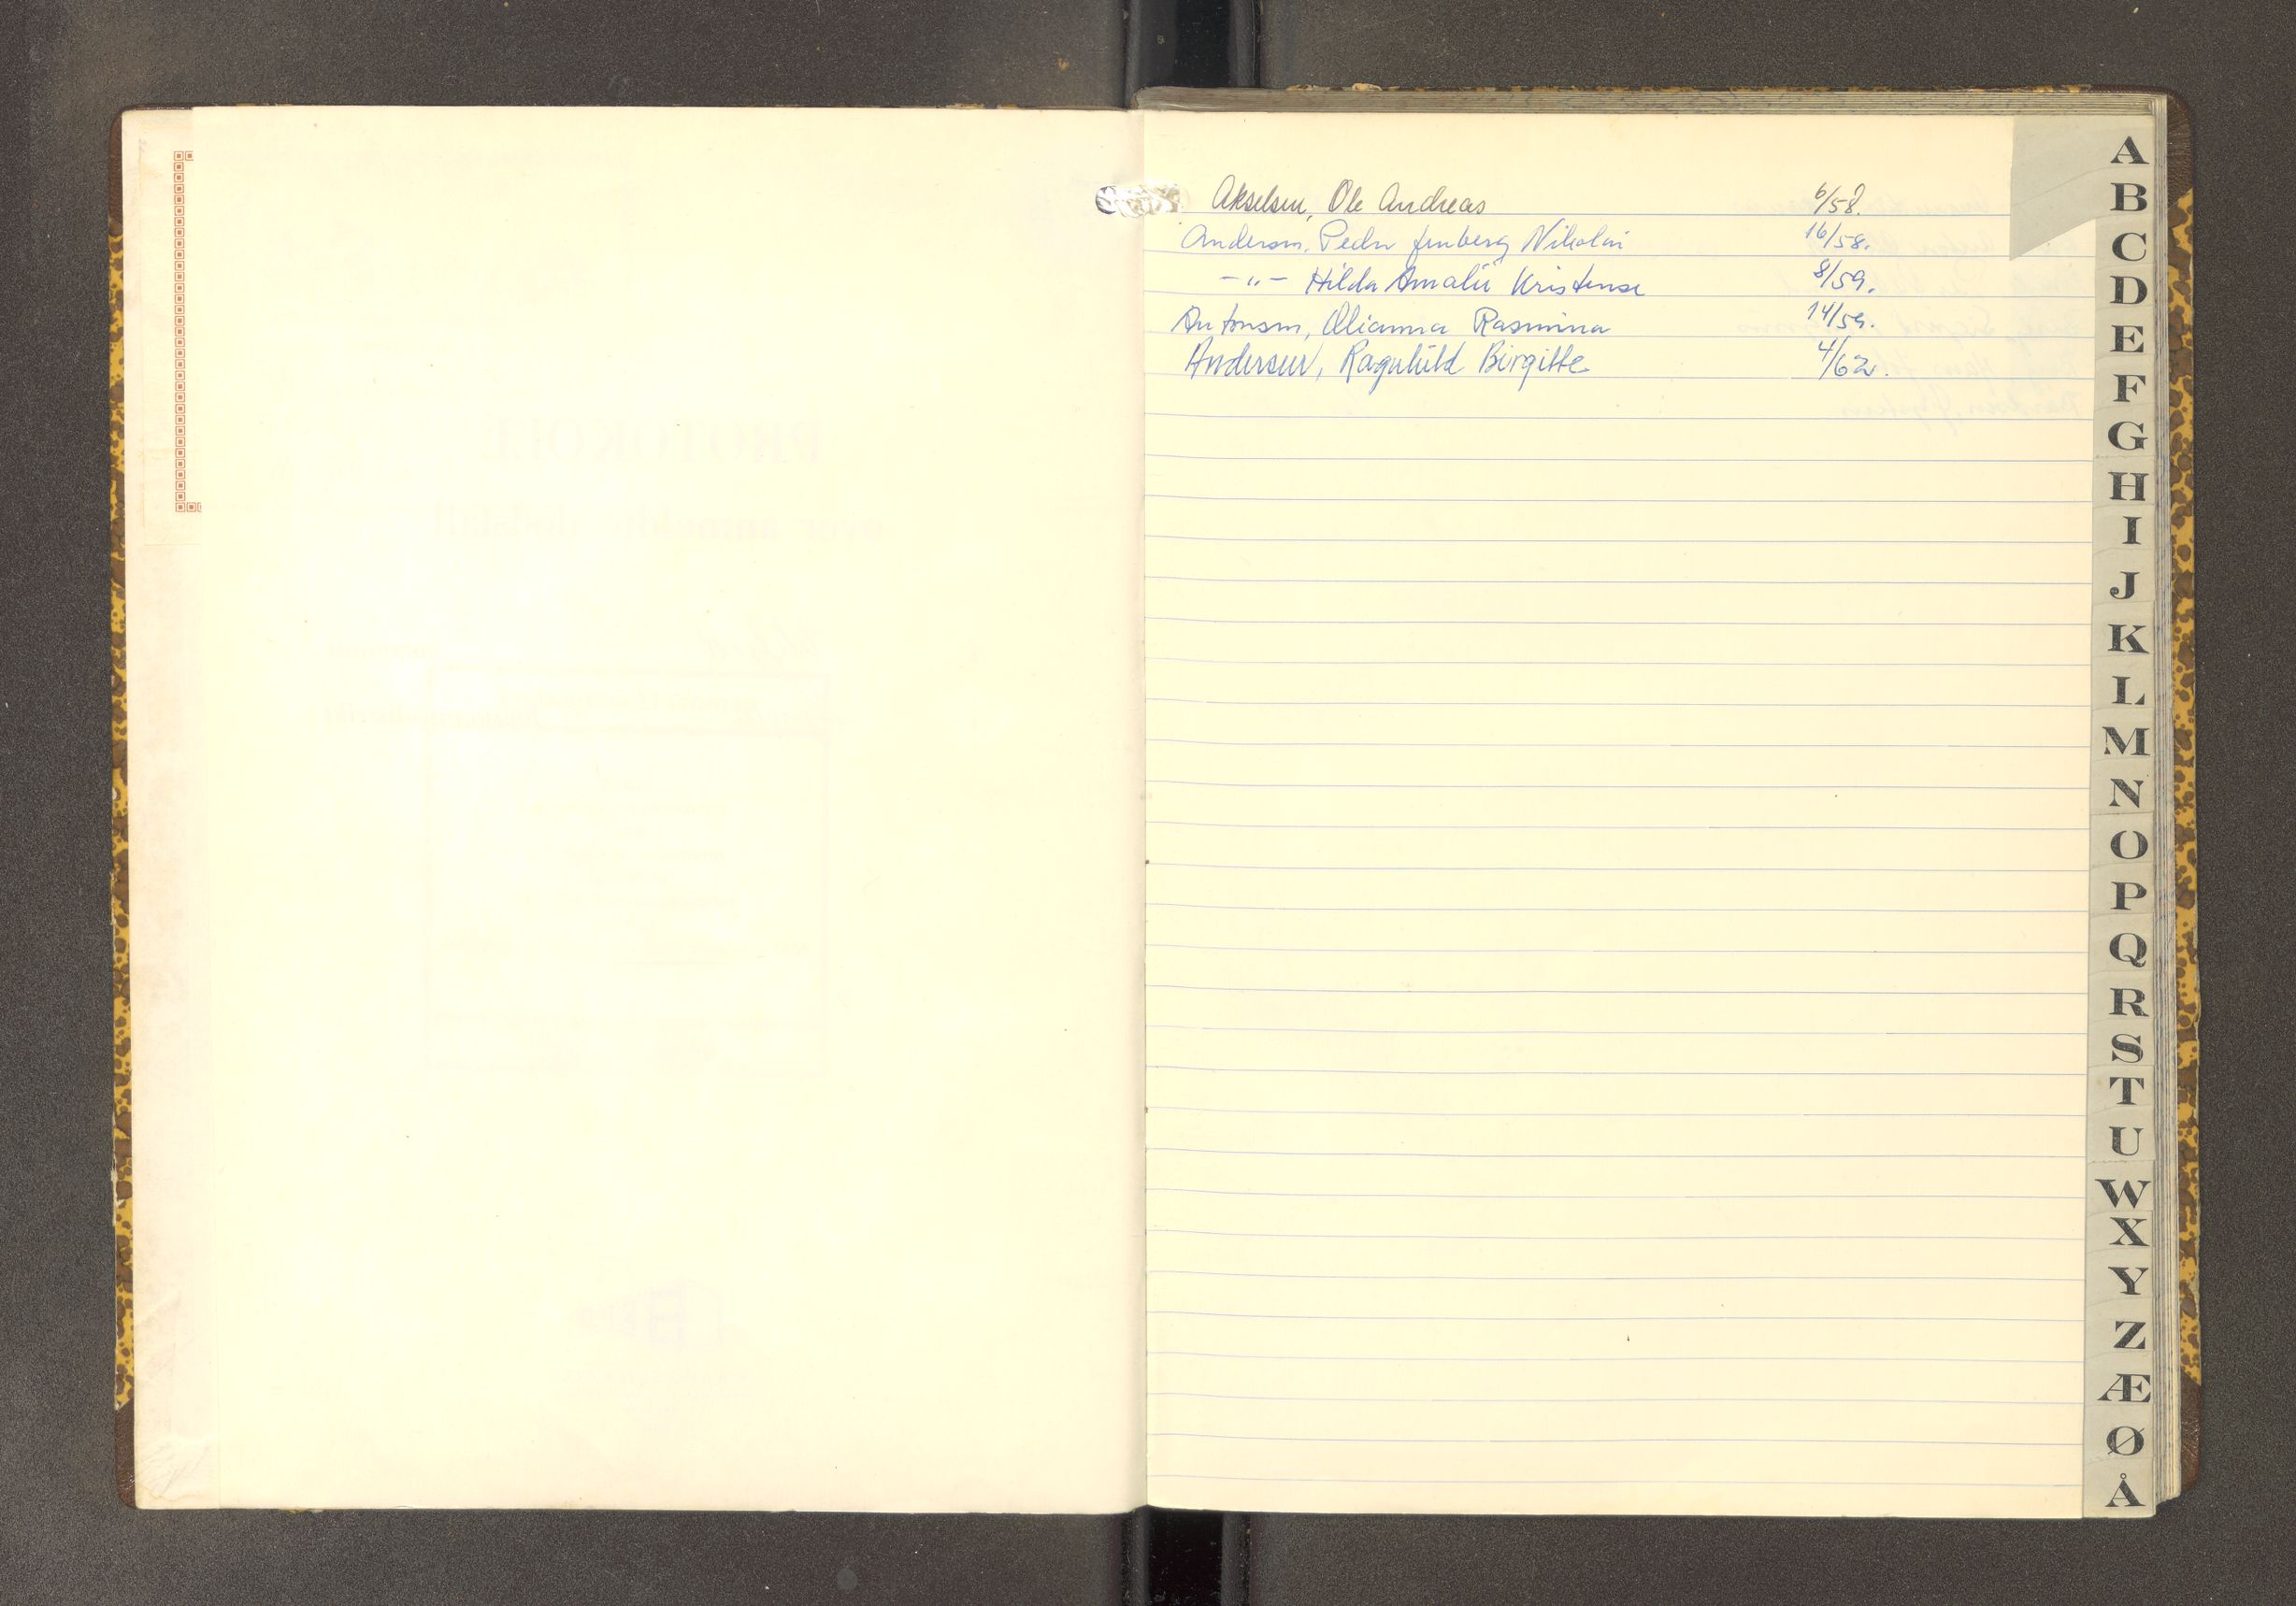 Akselsen, Ole Andreas 6/58.
Andersen, Peder Nikolai 16/58.
-"- Hilda Amalie Kristense 8/59.
Antonsen, Olianna Rasmina 14/59.
Andersen, Ragnhild Birgitte 4/62.
A
B
C
D
E
F
G
H
I
J
K
L
M
N
O
P
Q
R
S
T
U
W
X
Y
Z
Æ
Ø
Å